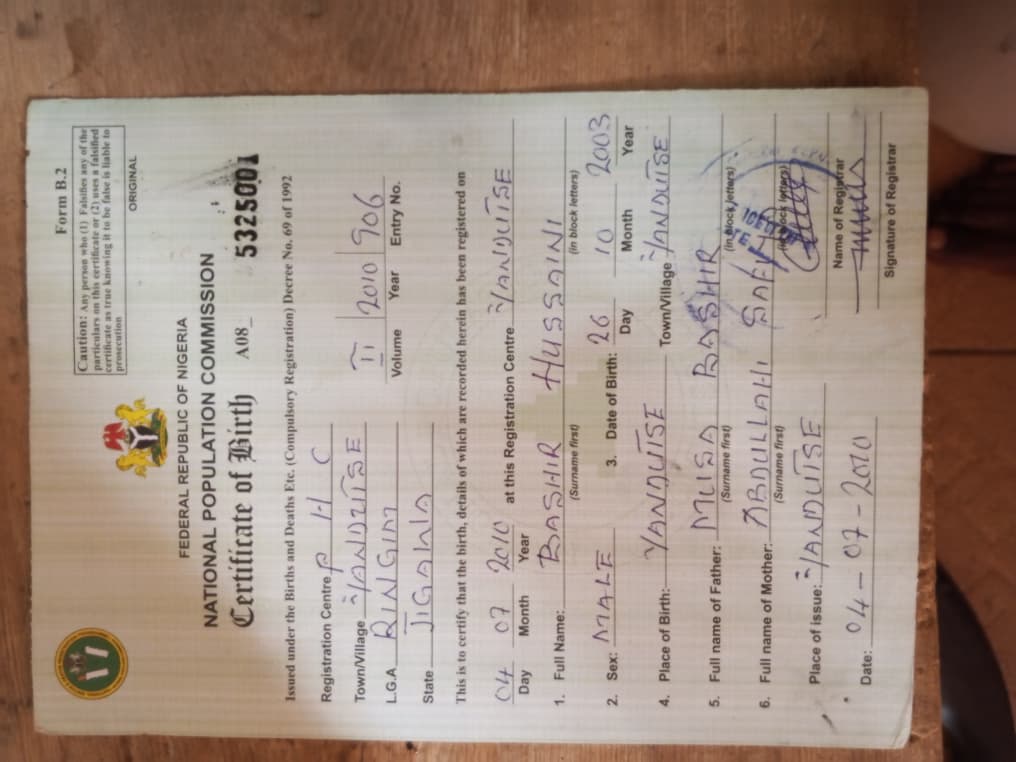 Form B.2
Caution: Any person who (1) Falsifies any of the
particulars on this certificate or (2) uses a falsified
certificate as true knowing it to be false is liable to
prosecution
ORIGINAL
FEDERAL REPUBLIC OF NIGERIA
NATIONAL POPULATION COMMISSION
Certificate of Birth A08 5325001
Issued under the Births and Deaths Etc. (Compulsory Registration) Decree No. 69 of 1992
Registration Centre P H C
Town/Village 'YANDUTSE II 2010 906
L.G.A RINGIM Volume Year Entry No.
State JIGAWA
This is to certify that the birth, details of which are recorded herein has been registered on
04 07 2010 at this Registration Centre 'YANDUTSE
Day Month Year
1. Full Name: BASHIR HUSSAINI
(Surname first) (in block letters)
2. Sex: MALE 3. Date of Birth: 26 10 2003
Day Month Year
4. Place of Birth: YANDUTSE Town/Village 'YANDUTSE
5. Full name of Father: MUSA BASHIR
(Surname first) (in block letters)
6. Full name of Mother: ABDULLAHI
(Surname first) (in block letters)
Place of issue: 'YANDUTSE
Name of Registrar
Date: 04-07-2010
Signature of Registrar